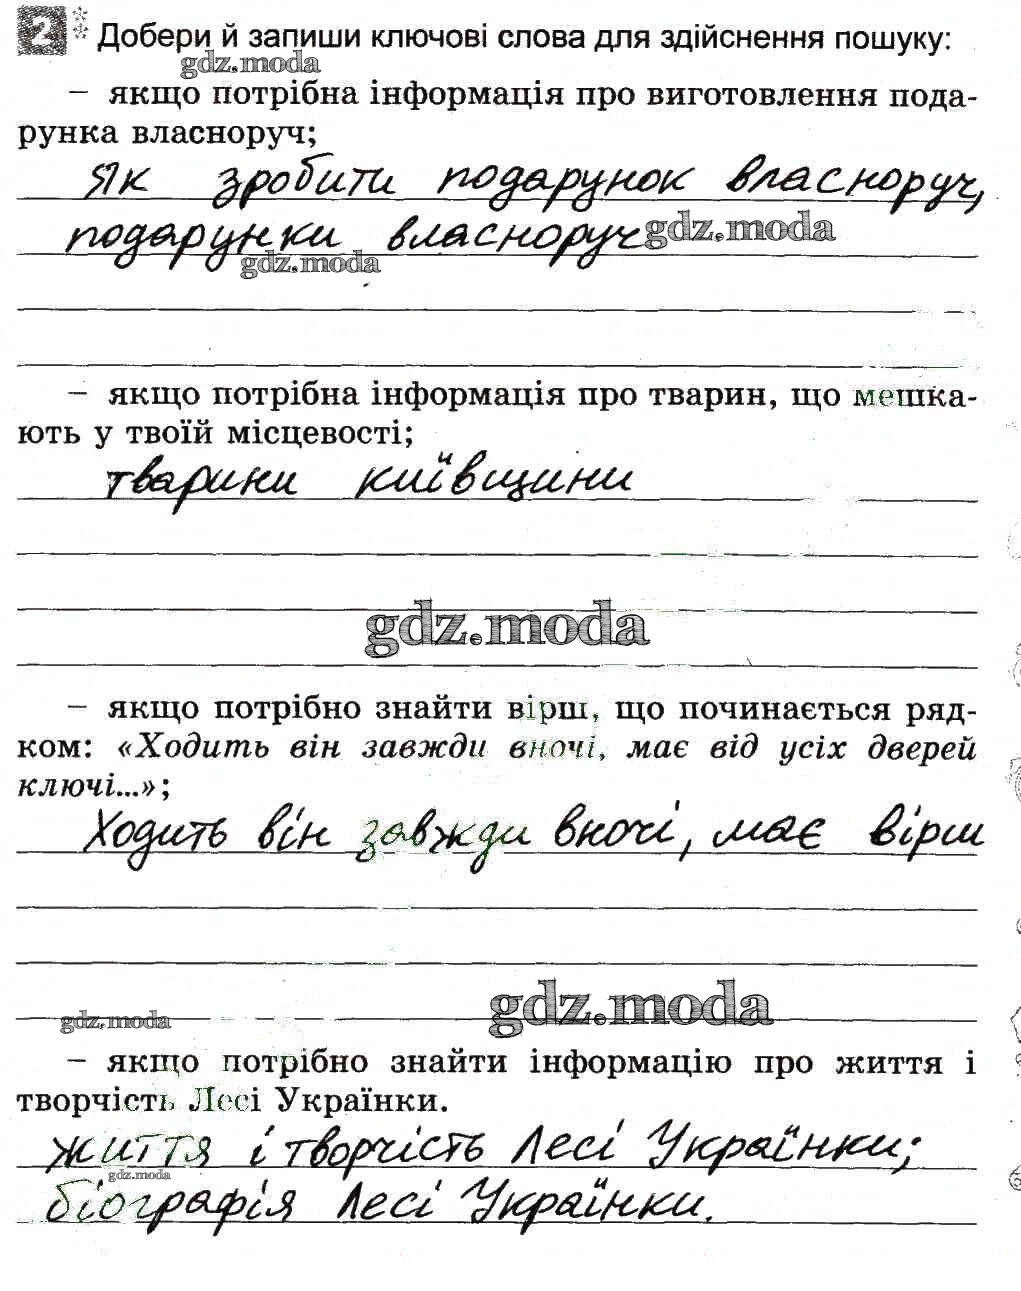 2 Добери й запиши ключові слова для здійснення пошуку:
gdz.moda
– якщо потрібна інформація про виготовлення пода-
рунка власноруч;
Як зробити подарунок власноруч,
подарунки власноруч gdz.moda
gdz.moda
– якщо потрібна інформація про тварин, що мешка-
ють у твоїй місцевості;
тварини київщини
gdz.moda
– якщо потрібно знайти вірш, що починається ряд-
ком: «Ходить він завжди вночі, має від усіх дверей
ключі...»;
Ходить він завжди вночі, має вірш
gdz.moda
gdz.moda
– якщо потрібно знайти інформацію про життя і
творчість Лесі Українки.
життя і творчість Лесі Українки;
gdz.moda
біографія Лесі Українки.